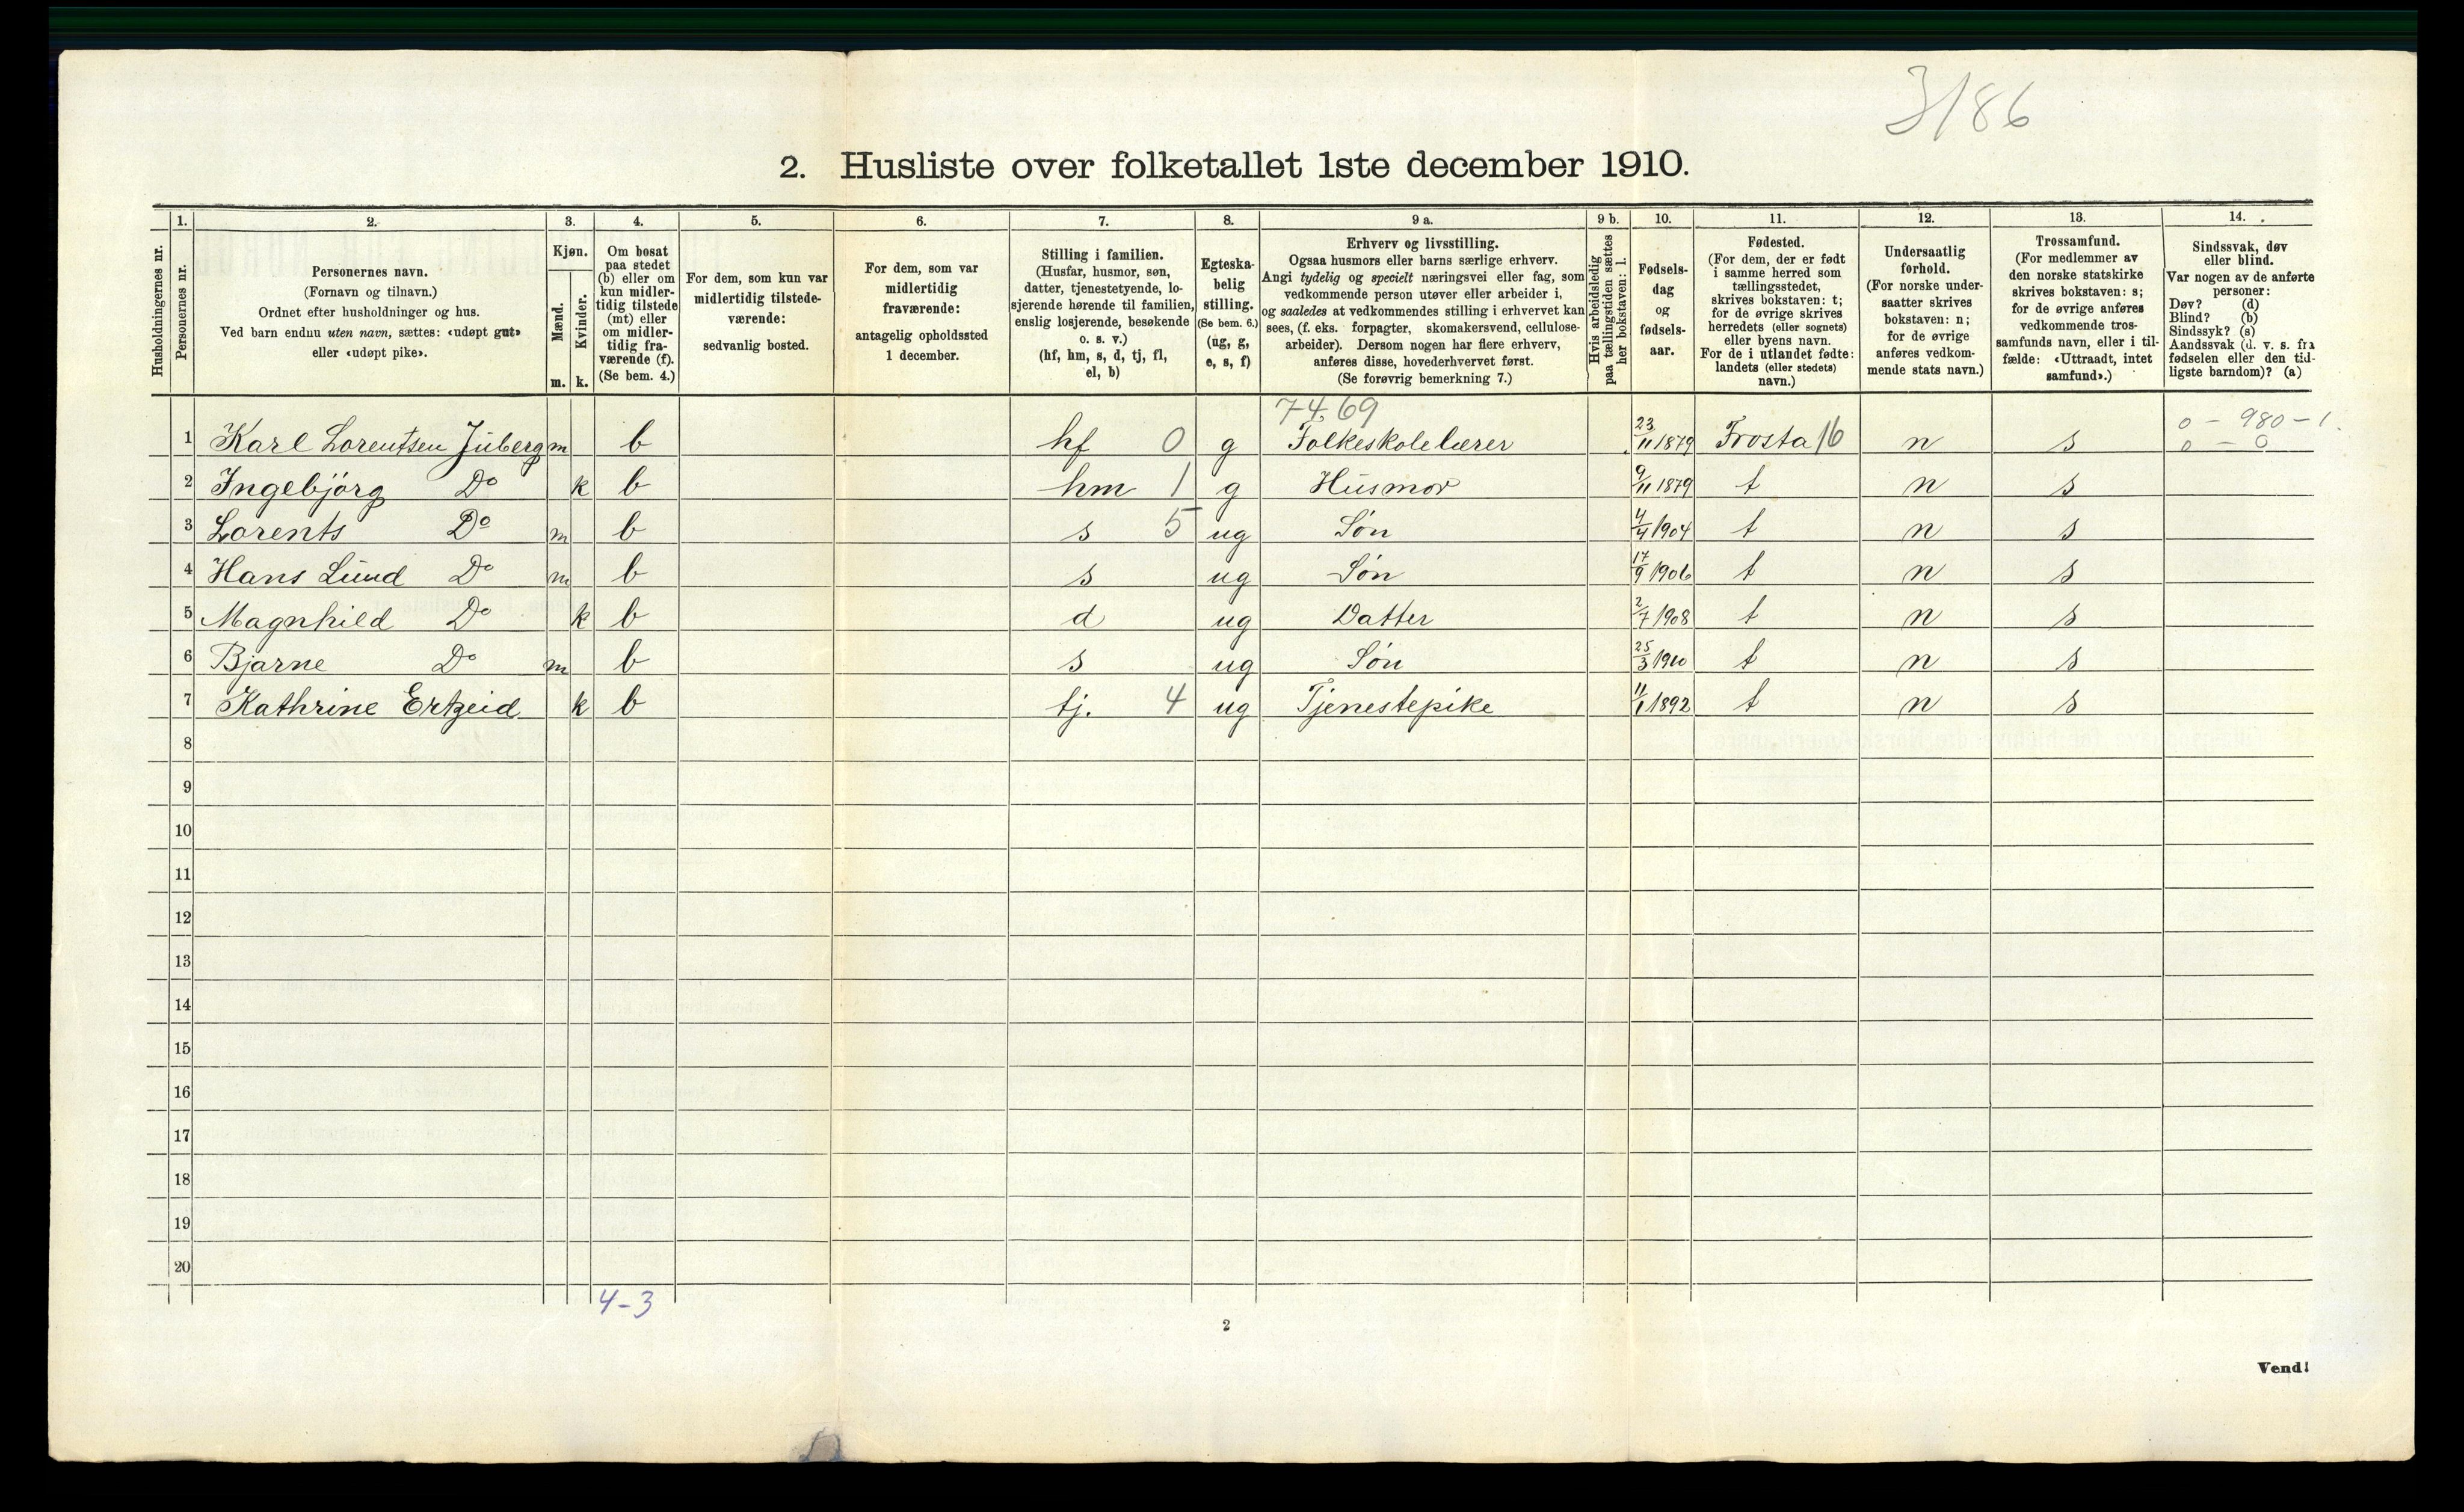 3/86
2. Husliste over folketallet 1ste december 1910.
Husholdningernes nr.
1.
Personernes nr.
2.
Personernes navn.
(Fornavn og tilnavn.)
Ordnet efter husholdninger og hus.
Ved barn endnu uten navn, sættes: «udøpt gut»
eller «udøpt pike».
3.
Kjøn.
Mænd.
Kvinder.
m. k.
4.
Om bosat
paa stedet
(b) eller om
kun midler-
tidig tilstede
(mt) eller
om midler-
tidig fra-
værende (f).
(Se bem. 4.)
5.
For dem, som kun var
midlertidig tilstede-
værende:
sedvanlig bosted.
6.
For dem, som var
midlertidig
fraværende:
antagelig opholdssted
1 december.
7.
Stilling i familien.
(Husfar, husmor, søn,
datter, tjenestetyende, lo-
sjerende hørende til familien,
enslig losjerende, besøkende
o. s. v.)
(hf, hm, s, d, tj, fl,
el, b)
8.
Egteska-
belig
stilling.
(Se bem. 6.)
(ug, g,
e, s, f)
9 a.
Erhverv og livsstilling.
Ogsaa husmors eller barns særlige erhverv.
Angi tydelig og specielt næringsvei eller fag, som
vedkommende person utøver eller arbeider i,
og saaledes at vedkommendes stilling i erhvervet kan
sees, (f. eks. forpagter, skomakersvend, cellulose-
arbeider). Dersom nogen har flere erhverv,
anføres disse, hovederhvervet først.
(Se forøvrig bemerkning 7.)
9 b.
Hvis arbeidsledig
paa tællingstiden sættes
her bokstaven: l.
10.
Fødsels-
dag
og
fødsels-
aar.
11.
Fødested.
(For dem, der er født
i samme herred som
tællingsstedet,
skrives bokstaven: t;
for de øvrige skrives
herredets (eller sognets)
eller byens navn.
For de i utlandet fødte:
landets (eller stedets)
navn.)
12.
Undersaatlig
forhold.
(For norske under-
saatter skrives
bokstaven: n;
for de øvrige
anføres vedkom-
mende stats navn.)
13.
Trossamfund.
(For medlemmer av
den norske statskirke
skrives bokstaven: s;
for de øvrige anføres
vedkommende tros-
samfunds navn, eller i til-
fælde: «Uttraadt, intet
samfund».)
14.
Sindssvak, døv
eller blind.
Var nogen av de anførte
personer:
Døv? (d)
Blind? (b)
Sindssyk? (s)
Aandssvak (d. v. s. fra
fødselen eller den tid-
ligste barndom)? (a)
7469 0 - 980 - 1.
1 Karl Lorentsen Juberg m b hf 0 g Folkeskolelærer 23/11 1879 Frosta 16 n s 0 - 0
2 Ingebjörg Do k b hm 1 g Husmor 9/11 1879 t n s
3 Lorents Do m b s 5 ug Søn 4/4 1904 t n s
4 Hans Lund Do m b s ug Søn 17/9 1906 t n s
5 Magnhild Do k b d ug Datter 2/7 1908 t n s
6 Bjarne Do m b s ug Søn 25/3 1910 t n s
7 Kathrine k b tj. 4 ug Tjenestepike 11/1 1892 t n s
8
9
10
11
12
13
14
15
16
17
18
19
20
4-3
2
Vend!